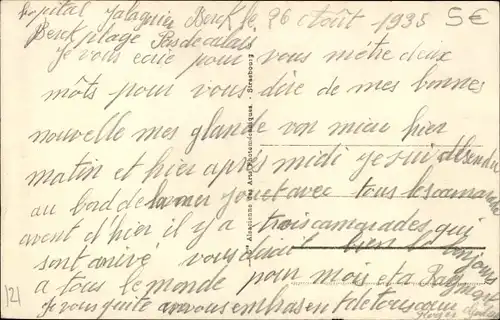 hopital Jalaguier Berck le 26 Août 1935 5€
Berck plage Pas de calais
je vous ecrie pour vous métre deux
môts pour vous dire de mes bonnes
nouvelle mes glande von mieu hier
matin et hier après midi je sui désendu
au bord de la mer jouet avec tous les camarade
avent d'hier il y a trois camarades qui
sont arrivé vous direit bien le bonjour
a tous le monde pour mois et a Raymond
je vous quite an vous embrasen t de tou coeur
121
Alsacienne des Arts Photomécaniques - Strasbourg